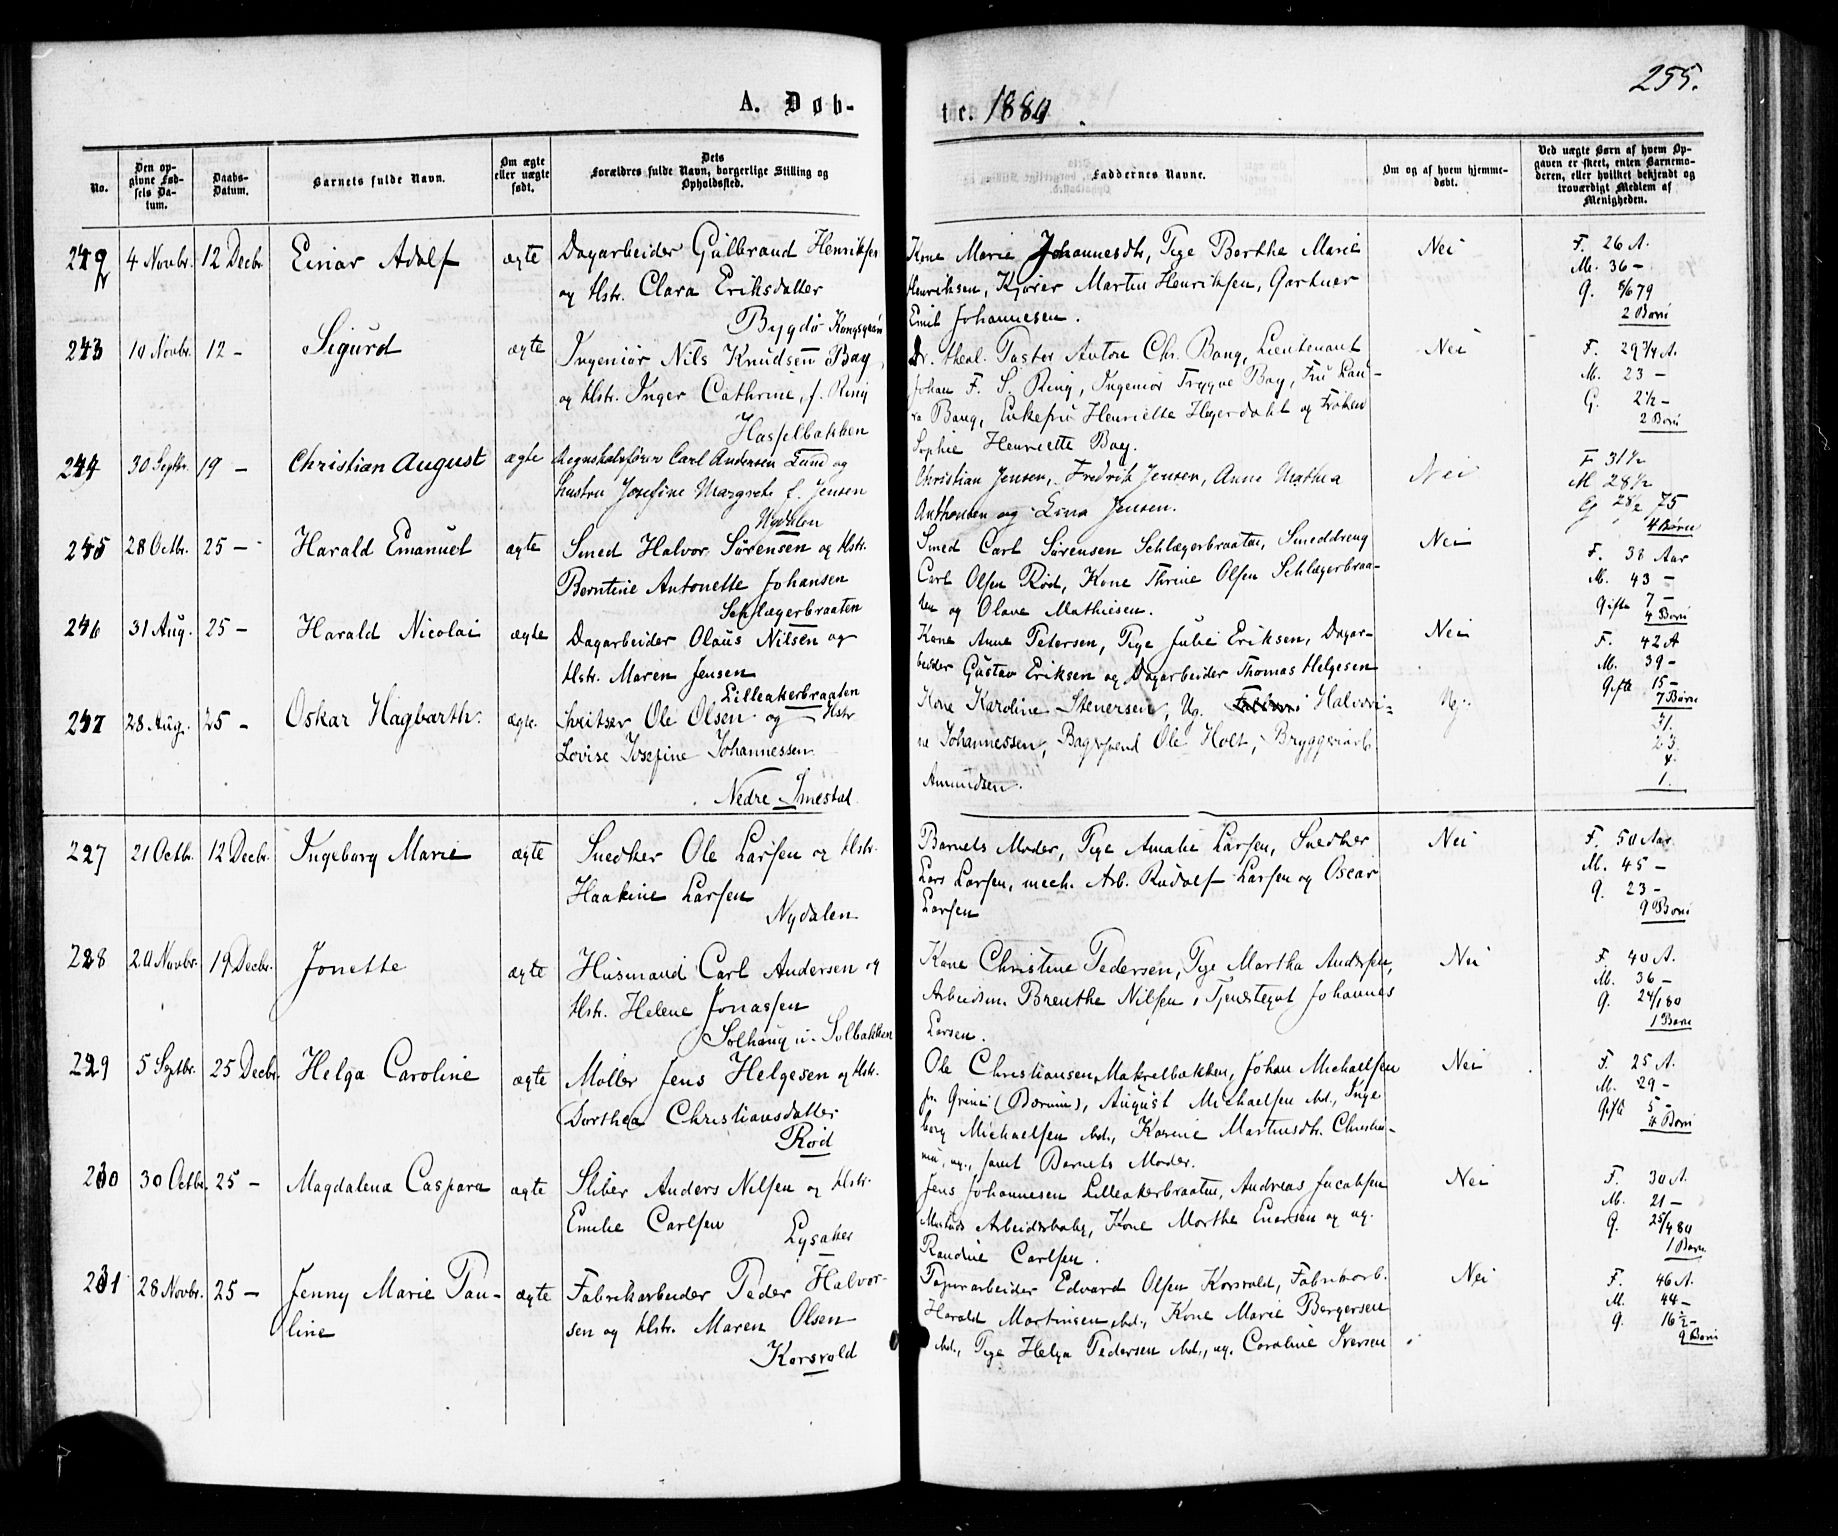 255.
A. Døb-
te. 1880.
No.
Den op-
givne Fød-
sels Da-
tum.
Daabs-
Datum.
Barnets fulde Navn.
Om ægte
eller uægte
født.
Dets
Forældres fulde Navn, borgerlige Stilling og
Opholdssted.
Faddernes Navne.
Om og af hvem hjemme-
døbt.
Ved uægte Børn af hvem Op-
gaven er skeet, enten Barnemo-
deren, eller hvilket bekjendt og
troværdigt Medlem af
Menigheden.
242 4 Novbr. 12 Decbr. Einar Adolf ægte Dagarbeider Gulbrand Henriksen
og Hstr. Clara Eriksdatter
Bygdø Kongsgaard
Kone Marie Johannesdtr, Pige Berthe Marie
Henriksen, Kjører Martin Henriksen, Gartner
Emil Johannesen.
Nei
F. 26 A.
M. 36 -
g. 6/6 79
2 Børn
243 10 Novbr. 12 - Sigurd ægte Ingeniør Nils Knudsen Bay
og Hstr. Inger Cathrine, f. Ring
Hasselbakken
Dr. theol. Pastor Anton Chr. Bang, Lieutenant
Johan F. S. Ring, Ingeniør Trygve Bay, Fru Lau-
ra Bang, Enkefru Henriette Heyerdahl og Frøken
Sophie Henriette Bay.
Nei
F. 29 3/4 A.
M. 23 -
G. 2 1/2 -
2 Børn
244 30 Septbr. 19 - Christian August ægte Regnskabsfører Carl Andersen Lund og
hustru Josefine Margrete f. Jensen
Nydalen
Christian Jensen, Fredrik Jensen, Anne Mathea
Anthonsen og Lina Jensen.
Nei
F 31 1/2
M 28 1/2
G 28/2 75
4 Børn
245 28 Octbr. 25 - Harald Emanuel ægte Smed Halvor Sørensen og Hstr.
Berntine Antonette Johansen
Schlægerbraaten
Smed Carl Sørensen Schlægerbraaten, Smeddreng
Carl Olsen Rød, Kone Thrine Olsen Schlægerbraa-
ten og Olave Mathiesen.
Nei
F. 38 Aar
M. 43 -
Gifte 7 -
4 Børn
246 31 Aug. 25 - Harald Nicolai ægte Dagarbeider Olaus Nilsen og
Hstr. Maren Jensen
Lilleakerbraaten
Kone Anne Petersen, Pige Julie Eriksen, Dagar-
beider Gustav Eriksen og Dagarbeider Thomas Helgesen
Nei
F. 42 A
M. 39 -
Gifte 15 -
7 Børn
247 28 Aug. 25 - Oskar Hagbarth. ægte. Sveitser Ole Olsen og Hstr
Lovise Josefine Johannessen
Nedre Smestad.
Kone Kardine Stenersen, Ug. Halvori-
ne Johannessen, Ole Holt, Bryggeriarb
Amundsen.
23.
4.
1.
227 21 Octbr. 12 Decbr. Ingeborg Marie ægte Snedker Ole Larsen og Hstr.
Haakine Larsen
Nydalen
Barnets Moder, Pige Amalie Larsen, Snedker
Lars Larsen, mech. Arb. Rudolf Larsen og Oscar
Larsen
Nei
F. 50 Aar.
M. 45 -
g. 23 -
9 Børn
228 20 Novbr. 19 Decbr. Jonette ægte Husmand Carl Andersen og
Hstr. Helene Jonassen
Solhaug u. Solbakken
Kone Christine Pedersen, Pige Martha Andersen,
Arbeidsm. Brenthe Nilsen, Tjenstegut Johannes
Larsen.
Nei
F. 40 A.
M. 36 -
g. 24/1 80
1 Barn
229 5 Septbr. 25 Decbr. Helga Caroline ægte Møller Jens Helgesen og Hstr.
Dorthea Christiansdatter
Rød
Ole Christiansen Makrelbakken, Johan Michaelsen
fr. Grini (Bærum), August Michaelsen ibd., Inge
borg Michaelsen ibd., Karine Martinsdtr. Christia-
nia, ug., samt Barnets Moder.
Nei
F. 25 A.
M. 29 -
Gifte 5 -
4 Børn
230 30 Octbr. 25 - Magdalena Caspara ægte Sliber Anders Nilsen og Hstr.
Emilie Carlsen
Lysaker
Jens Johannesen Lilleakerbraaten, Andreas Jacobsen
Mustads Arbeiderbolig, Kone Marthe Enersen og ug.
Randine Carlsen.
Nei
F. 30 A.
M. 21 -
g. 25/4 80
1 Barn
231 28 Novbr. 25 - Jenny Marie Pau-
line
ægte Fabrikarbeider Peder Halvor-
sen og Hstr. Maren Olsen
Korsvold
Papirarbeider Edvard Olsen Korsvold, Fabrikarb.
Harald Martinsen ibd., Kone Marie Bergersen
ibd., Pige Helga Pedersen ibd., ug. Caroline Iversen
Nei
F. 46 A.
M. 44 -
g. 16 1/2 -
9 Børn